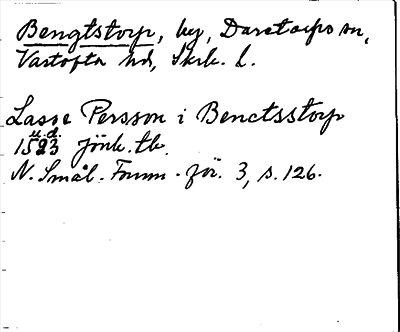 Bengtstorp, by, Daretorps sn,
Vartofta hd, Skrb. l.
Lasse Persson i Benctsstorp
u.d.
1523 jönk. tb.
N. Smål. Fornm. för. 3, s. 126.